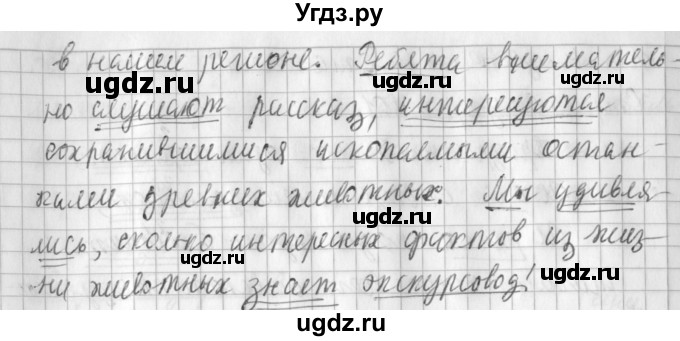 Угдз.ру
в нашем регионе. Ребята вниматель-
но слушают рассказ, интересуются
сохранившимися ископаемыми остан-
ками древних животных. Мы удивля-
лись, сколько интересных фактов из жиз-
ни животных знает экскурсовод!
ugdz.ru
ugdz.ru
ugdz.ru
ugdz.ru
ugdz.ru
ugdz.ru
ugdz.ru
ugdz.ru
ugdz.ru